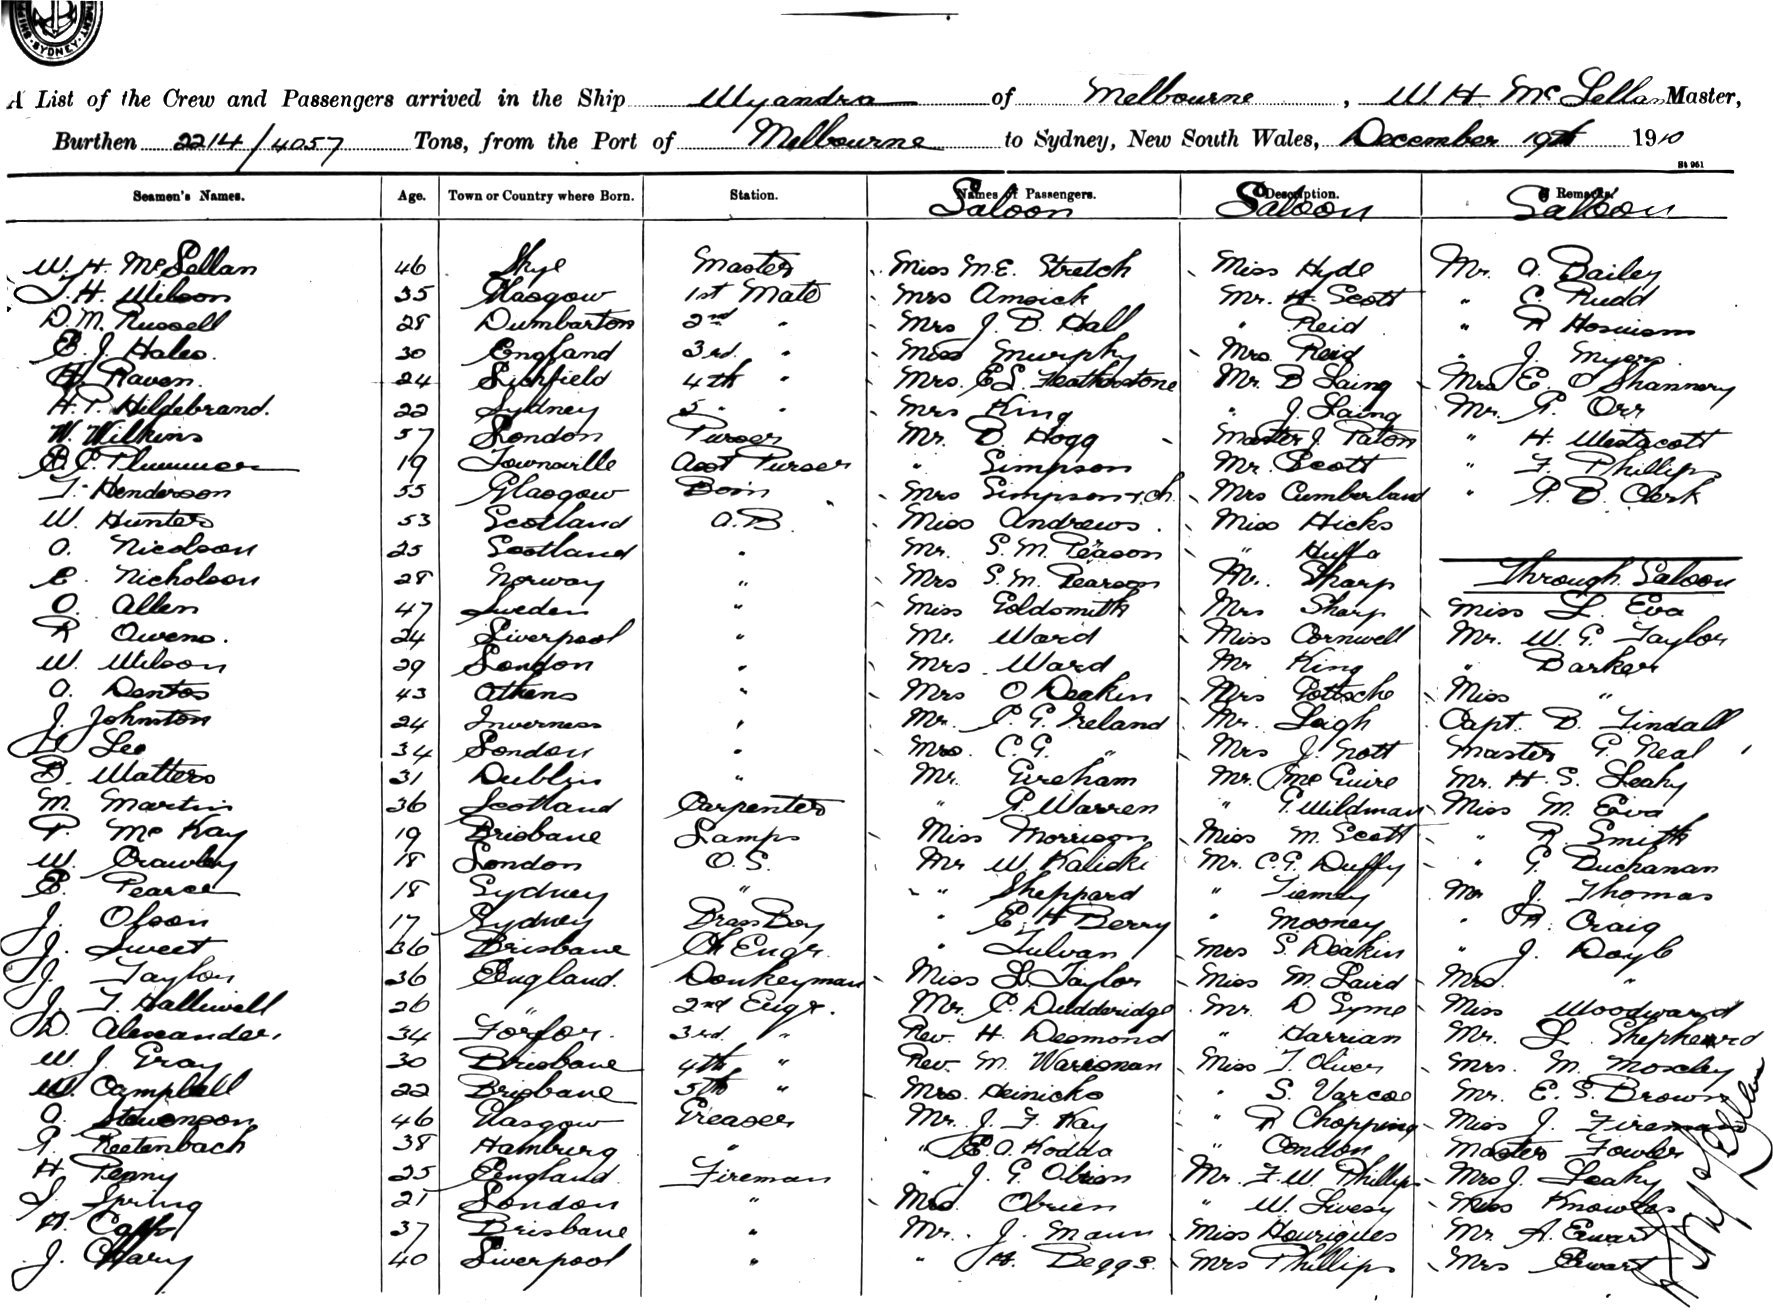 SYDNEY
A List of the Crew and Passengers arrived in the Ship Wyandra of Melbourne, W. H. McLellan Master,
Burthen 2214/4057 Tons, from the Port of Melbourne to Sydney, New South Wales, December 19th 1910
St 961
Seamen's Names. Age. Town or Country where Born. Station. Names of Passengers. Description. Remarks.
Saloon Saloon Saloon
W. H. McLellan 46 Skye Master Miss M.E. Stretch Miss Hyde Mr. A. Bailey
T. H. Wilson 35 Glasgow 1st Mate Mrs Amsick Mr. H. Scott " C. Rudd
D. M. Russell 28 Dumbarton 2nd " Mrs J. B. Hall " Reid " R
B. J. Hales. 30 England 3rd. " Miss Murphy Mrs. Reid " J. Myers.
H. Raven. 24 Lichfield 4th " Mrs. E S. Featherstone Mr. B Laing Mrs E. O'Shannery
H. P. Hildebrand. 22 Sydney 5 " " Mrs King " J. Laing Mr. A. Orr
W. Wilkins 57 London Purser Mr. B. Hogg Master J. Paton " H. Westacott
B. C. Plummer 19 Townsville Asst Purser " Simpson Mr. Scott " F. Phillips
T. Henderson 55 Glasgow Bosn Mrs Simpson & ch. Mrs Cumberland " A. B. Clerk
W. Hunter 53 Scotland A.B. Miss Andrews. Miss Hicks
A. Nicolson 25 Scotland " Mr. S. M. Pearson " Huffa
E. Nicholson 28 Norway " Mrs S. M. Pearson Mr. Sharp Through Saloon
O. Allen 47 Sweden " Miss Goldsmith Mrs Sharp Miss L. Eva
R Owens. 24 Liverpool " Mr. Ward Miss Cornwell Mr. W. G. Taylor
W. Wilson 29 London " Mrs. Ward Mr King " Barker
A. Dentos 43 Athens " Mrs O Deakin Mrs Gottsche Miss "
J. Johnston 24 Inverness " Mr. P. G. Ireland Mr. Leigh Capt. B. Tindall
Lee 34 London " Mrs. C. G. " Mrs J. Nott Master G. Neal
B. Watters 31 Dublin " Mr. Gresham Mr. McGuire Mr. H. S. Leahy
M. Martin 36 Scotland Carpenter " P. Warren " G. Wildman Miss M. Eva
P. McKay 19 Brisbane Lamps Miss Morrison Miss M. Scott " R. Smith
W. Crawley 18 London O.S. Mr W. Kalicki Mr. C. G. Duffy " G. Buchanan
E. Pearce 18 Sydney " " Sheppard " Tierney Mr J. Thomas
J. Olson 17 Sydney Brass Boy " E. H Berry " Mooney " A. Craig
J. Sweet 36 Brisbane Ch Engr. " Tulvan Mrs S. Deakin " J. Doyle
J. Taylor 36 England. Donkeyman Miss L. Taylor Miss M. Laird Mrs. "
J. T. Halliwell 26 " 2nd Engr. Mr. C. Dudderidge Mr. D Syme Miss Woodward
D. Alexander. 34 Forfar. 3rd. " Rev. H. Desmond " Harrian Mr. L. Shepherd
W. J. Gray 30 Brisbane 4th " Rev. M. Miss T. Oliver Mrs. M. Moseley
W. Campbell 22 Brisbane 5th " Mrs. Heinicke " S. Varcoe Mr. E. S. Brown
A. Stevenson 46 Glasgow Greaser Mr. J. F. Kay " R Chopping Miss J. Fireman
P. Reetenbach 38 Hamburg " " E. A. Kodda " Condon Master Fowler
H. Penny 25 England Fireman " J. G. Obrien Mr. F. W. Phillips Mrs J. Leahy
S. Spring 21 London " Mrs. Obrien " W. Livesy Miss Knowles
37 Brisbane " Mr. J. Mann Miss Hourigues Mr. A. Ewart
J. Chary 40 Liverpool " " H. Beggs. Mrs Phillips Mrs Ewart